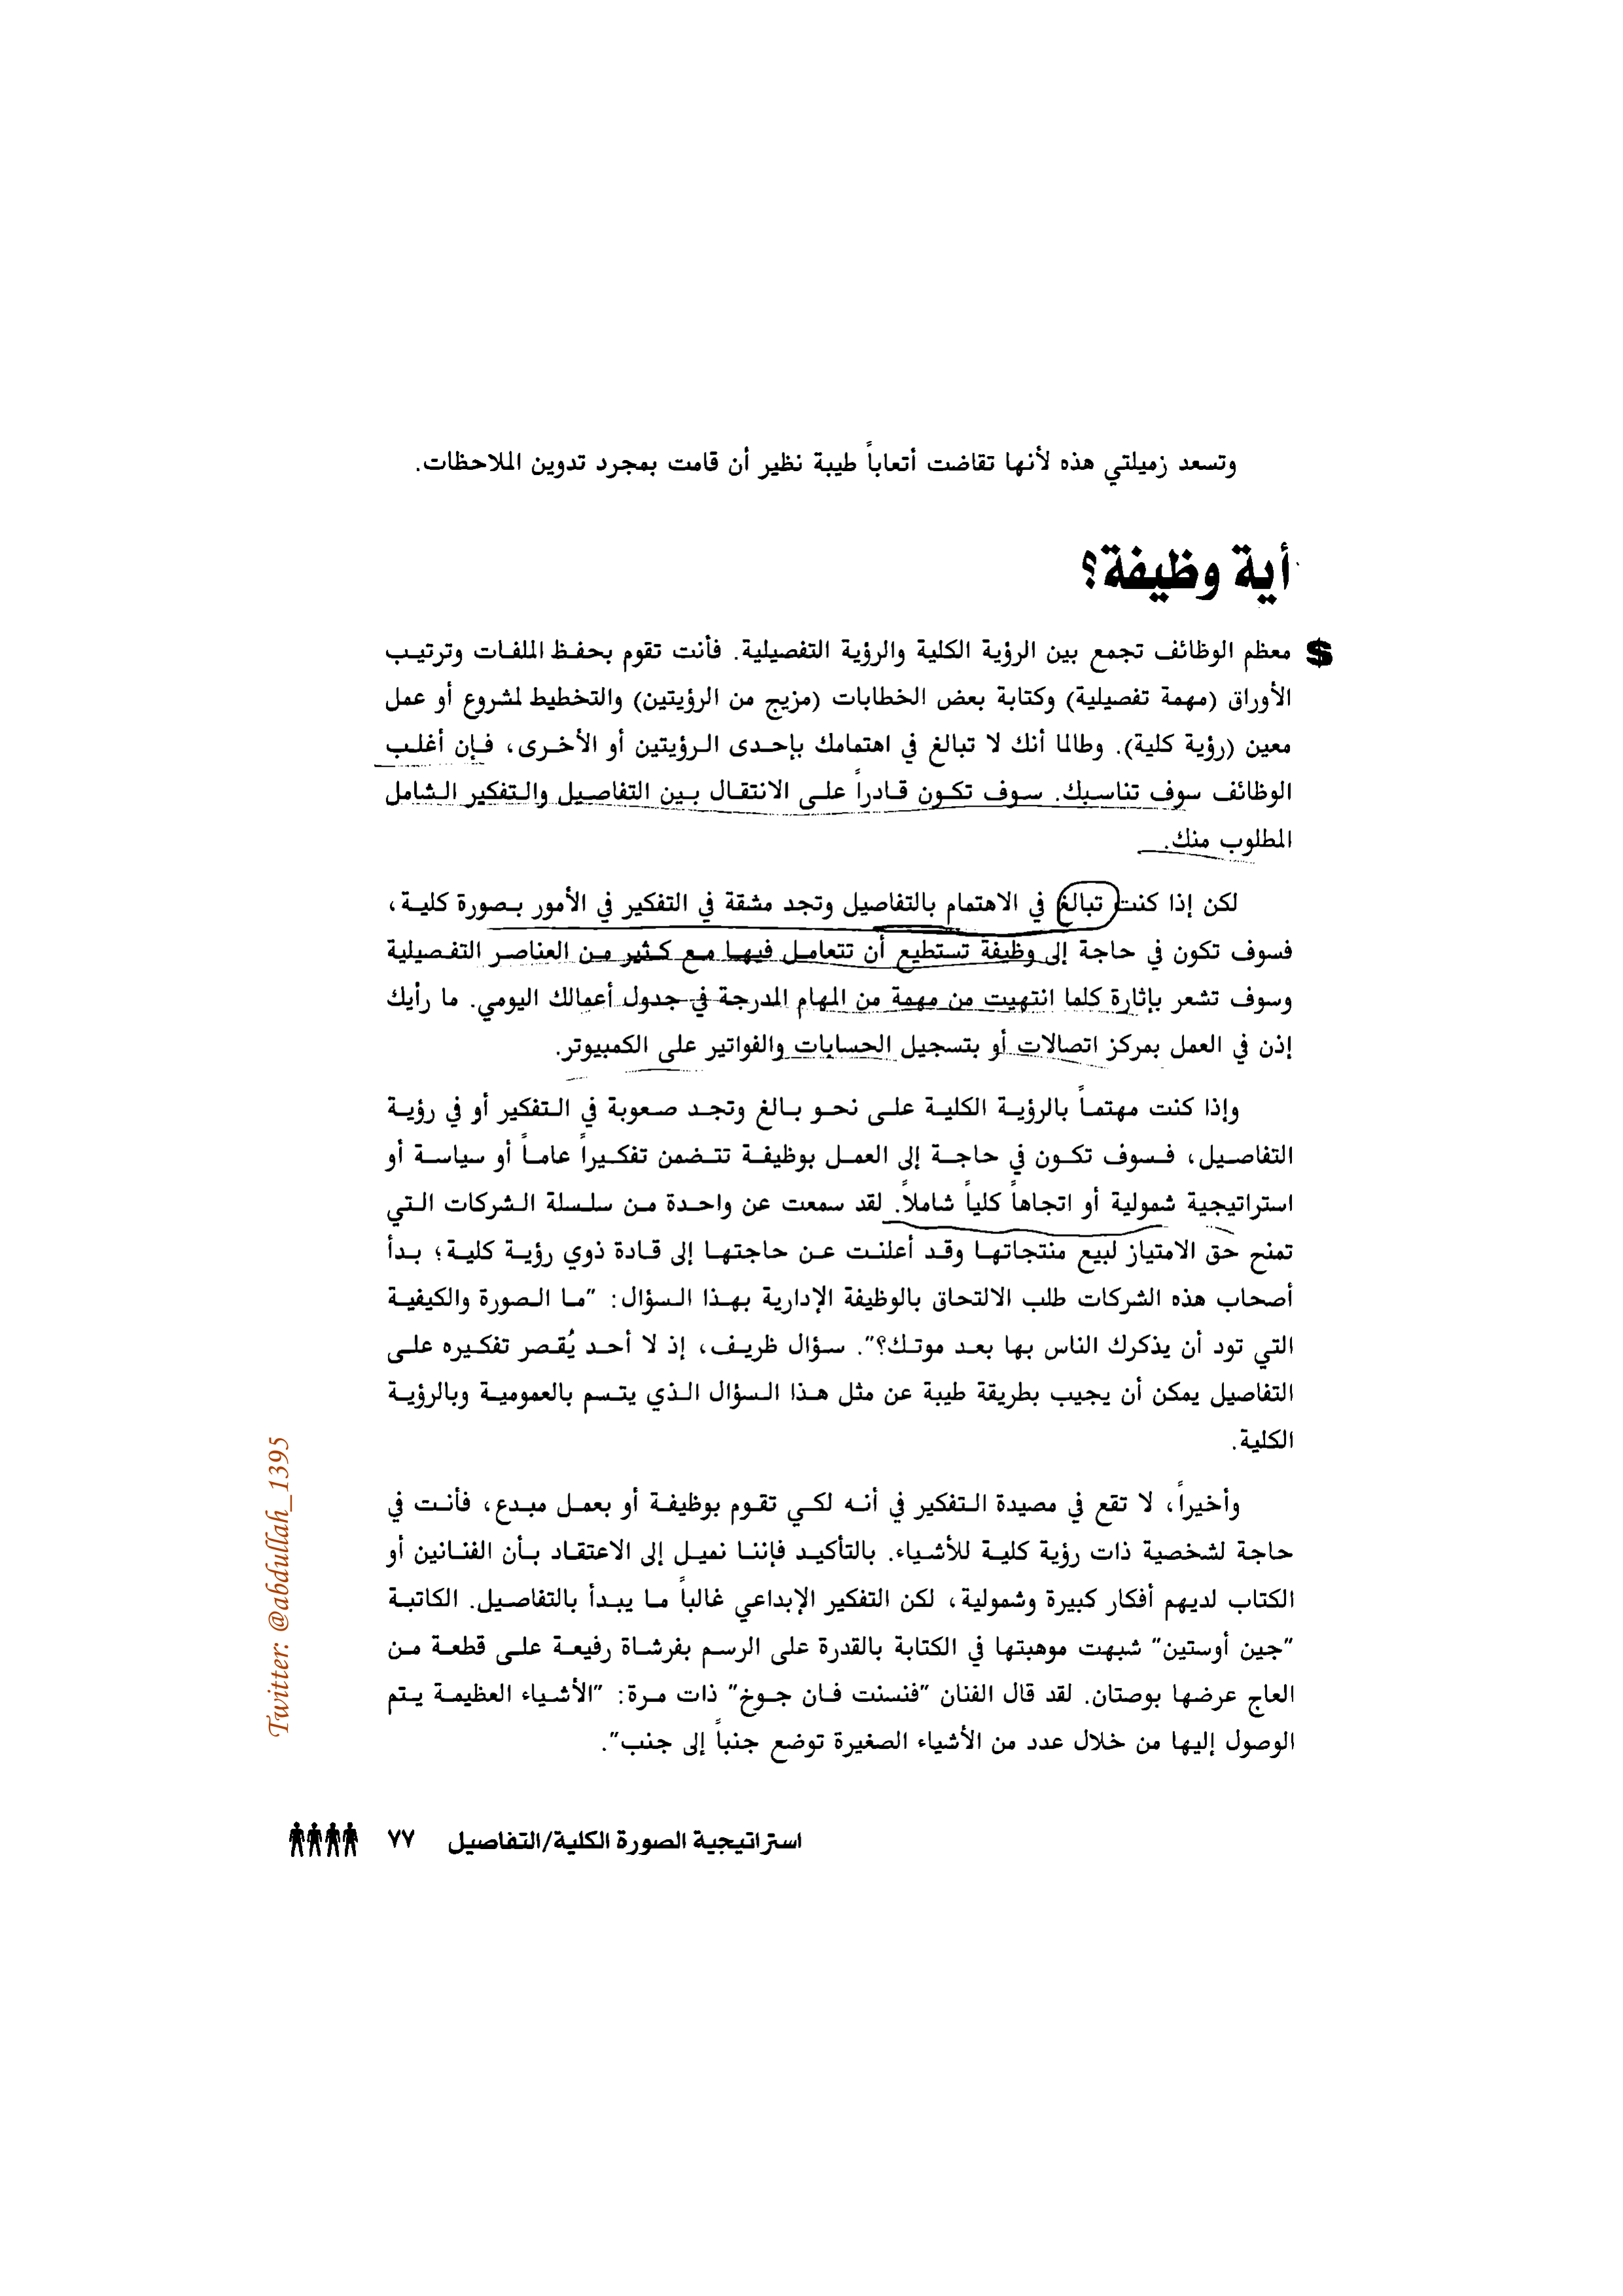 وتسعد زميلتي هذه لأنها تقاضت أتعاباً طيبة نظير أن قامت بمجرد تدوين الملاحظات.
أية وظيفة؟
$ معظم الوظائف تجمع بين الرؤية الكلية والرؤية التفصيلية. فأنت تقوم بحفظ الملفات وترتيب
الأوراق (مهمة تفصيلية) وكتابة بعض الخطابات (مزيج من الرؤيتين) والتخطيط لمشروع أو عمل
معين (رؤية كلية). وطالما أنك لا تبالغ في اهتمامك بإحدى الرؤيتين أو الأخرى، فإن أغلب
الوظائف سوف تناسبك. سوف تكون قادراً على الانتقال بين التفاصيل والتفكير الشامل
المطلوب منك.
لكن إذا كنت تبالغ في الاهتمام بالتفاصيل وتجد مشقة في التفكير في الأمور بصورة كلية،
فسوف تكون في حاجة إلى وظيفة تستطيع أن تتعامل فيها مع كثير من العناصر التفصيلية
وسوف تشعر بإثارة كلما انتهيت من مهمة من المهام المدرجة في جدول أعمالك اليومي. ما رأيك
إذن في العمل بمركز اتصالات أو بتسجيل الحسابات والفواتير على الكمبيوتر.
وإذا كنت مهتماً بالرؤية الكلية على نحو بالغ وتجد صعوبة في التفكير أو في رؤية
التفاصيل، فسوف تكون في حاجة إلى العمل بوظيفة تتضمن تفكيراً عاماً أو سياسة أو
استراتيجية شمولية أو اتجاهاً كلياً شاملاً. لقد سمعت عن واحدة من سلسلة الشركات التي
تمنح حق الامتياز لبيع منتجاتها وقد أعلنت عن حاجتها إلى قادة ذوي رؤية كلية؛ بدأ
أصحاب هذه الشركات طلب الالتحاق بالوظيفة الإدارية بهذا السؤال: "ما الصورة والكيفية
التي تود أن يذكرك الناس بها بعد موتك؟". سؤال ظريف، إذ لا أحد يُقصر تفكيره على
التفاصيل يمكن أن يجيب بطريقة طيبة عن مثل هذا السؤال الذي يتسم بالعمومية وبالرؤية
الكلية.
وأخيراً، لا تقع في مصيدة التفكير في أنه لكي تقوم بوظيفة أو بعمل مبدع، فأنت في
حاجة لشخصية ذات رؤية كلية للأشياء. بالتأكيد فإننا نميل إلى الاعتقاد بأن الفنانين أو
الكتاب لديهم أفكار كبيرة وشمولية، لكن التفكير الإبداعي غالباً ما يبدأ بالتفاصيل. الكاتبة
"جين أوستين" شبهت موهبتها في الكتابة بالقدرة على الرسم بفرشاة رفيعة على قطعة من
العاج عرضها بوصتان. لقد قال الفنان "فنسنت فان جوخ" ذات مرة: "الأشياء العظيمة يتم
الوصول إليها من خلال عدد من الأشياء الصغيرة توضع جنباً إلى جنب".
استراتيجية الصورة الكلية/التفاصيل ٧٧
Twitter: @abdullah_1395